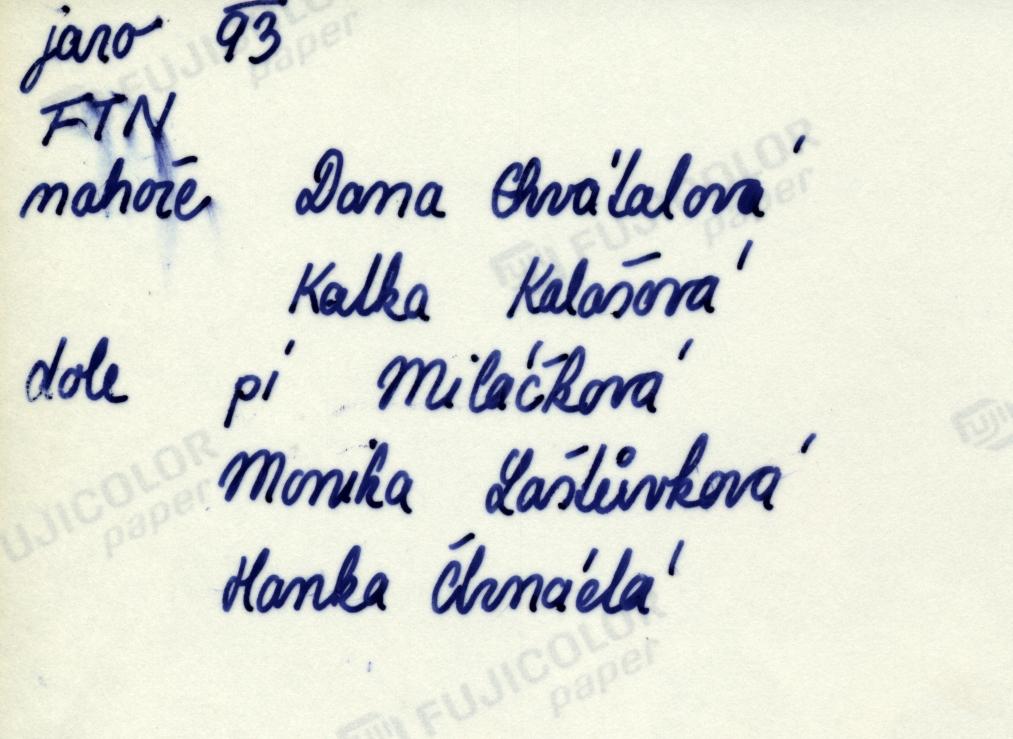 jaro 93
FTN
nahoře Dana Chvátalová
Katka Kalašová
dole pí Miláčková
Monika Laštůvková
Hanka
FUJICOLOR
paper
FUJICOLOR
paper
FUJICOLOR
paper
FUJICOLOR
paper
FUJI